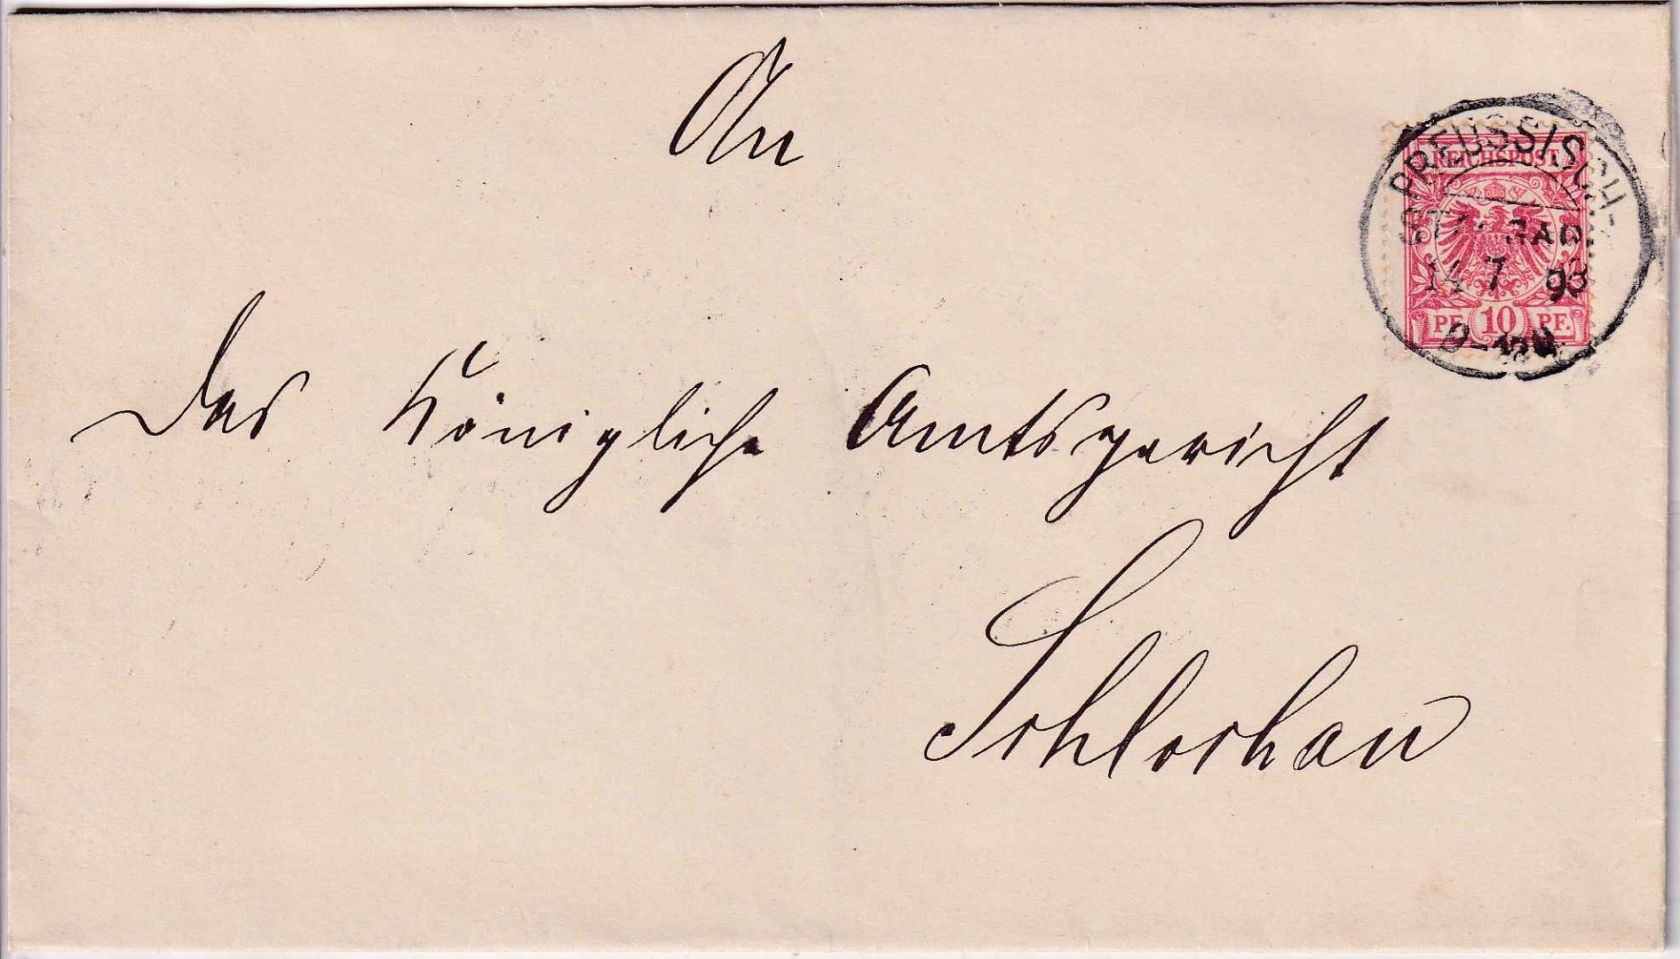 An
Das Königliche Amtsgericht
Schlochau
REICHSPOST
PF. 10 PF.
PREUSSISCH-
14 7 93